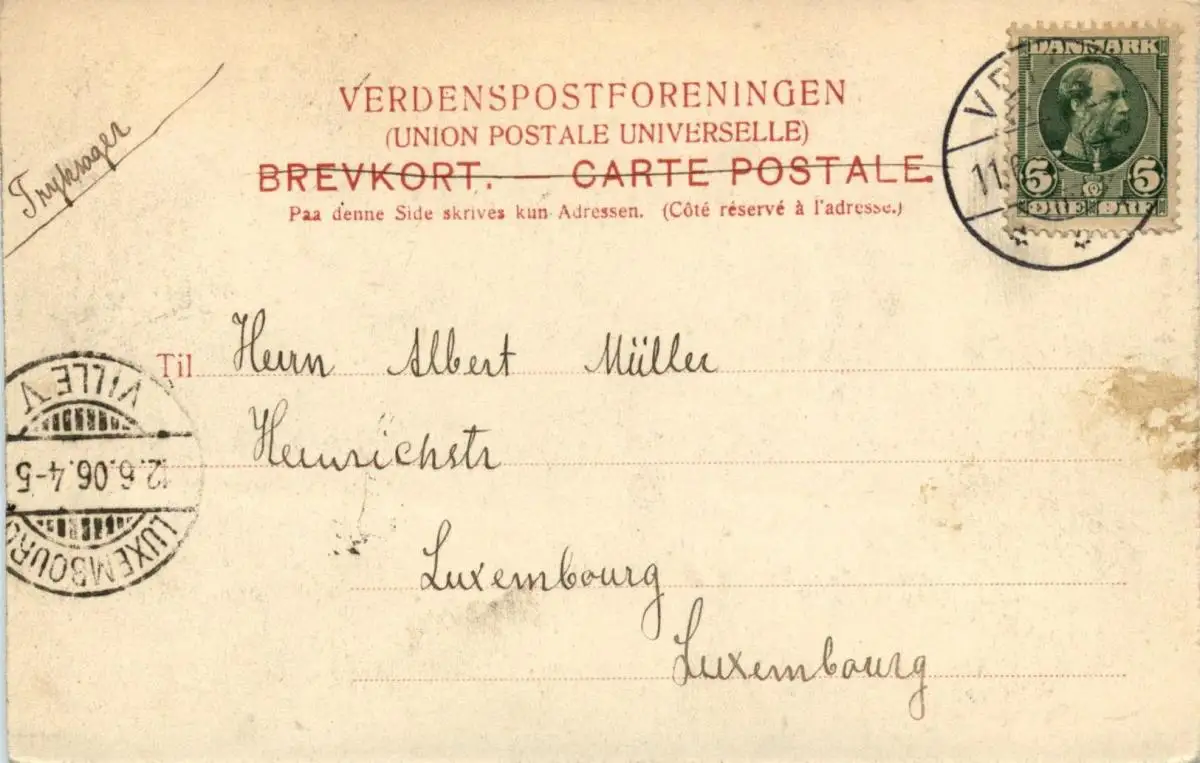 Tryksager
VERDENSPOSTFORENINGEN
(UNION POSTALE UNIVERSELLE)
BREVKORT. — CARTE POSTALE.
Paa denne Side skrives kun Adressen. (Côté réservé à l'adresse.)
DANMARK
5 5
ØRE ØRE
11.
Til Herrn Albert Müller
Heinrichstr
Luxembourg
Luxembourg
LUXEMBOURG
12.6.06.4-5
VILLE V